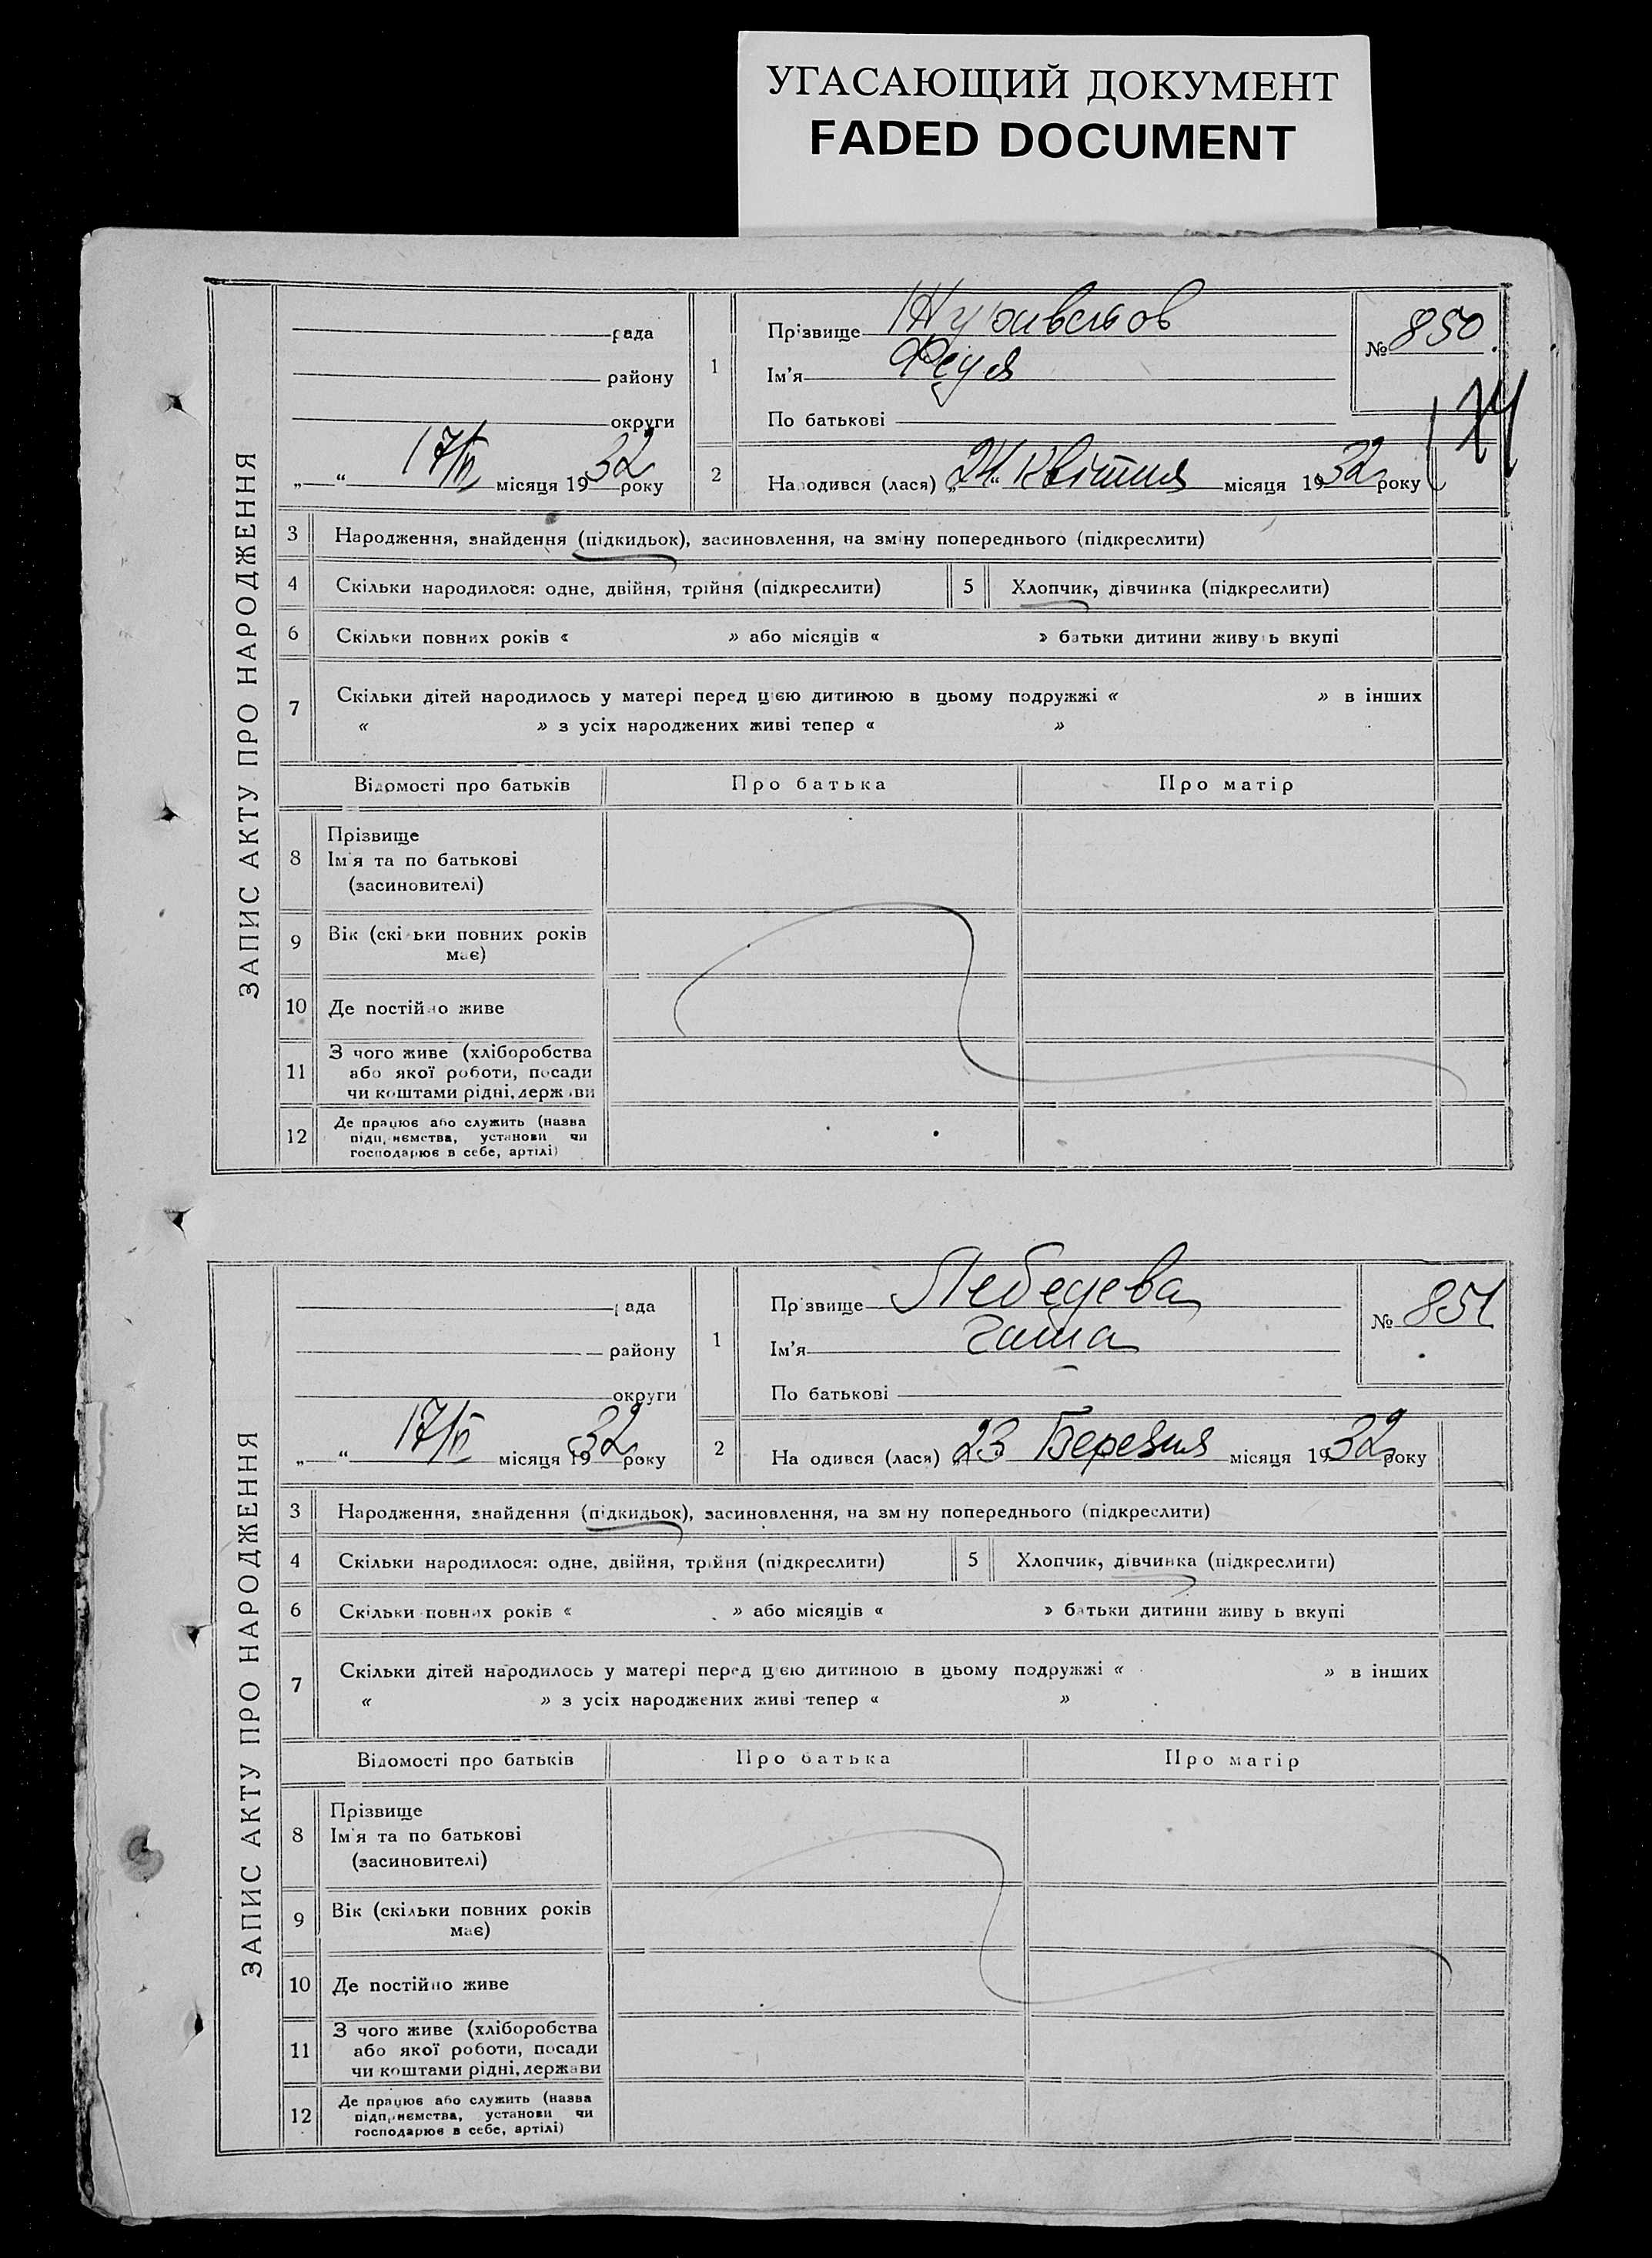 УГАСАЮЩИЙ ДОКУМЕНТ
FADED DOCUMENT
ЗАПИС АКТУ ПРО НАРОДЖЕННЯ
рада
району
округи
„ “ 17/VI місяця 1932 року
1
Прізвище
Ім'я Федя
По батькові
№ 850
174
2
Народився (лася) „24“ Квітня місяця 1932 року
3 Народження, знайдення (підкидьок), засиновлення, на зміну попереднього (підкреслити)
4 Скільки народилося: одне, двійня, трійня (підкреслити)
5 Хлопчик, дівчинка (підкреслити)
6 Скільки повних років « » або місяців « » батьки дитини живуть вкупі
7 Скільки дітей народилось у матері перед цією дитиною в цьому подружжі « » в інших
« » з усіх народжених живі тепер « »
Відомості про батьків Про батька Про матір
8 Прізвище
Ім'я та по батькові
(засиновителі)
9 Вік (скільки повних років
має)
10 Де постійно живе
11 З чого живе (хліборобства
або якої роботи, посади
чи коштами рідні, держави
12 Де працює або служить (назва
підприємства, установи чи
господарює в себе, артілі)
ЗАПИС АКТУ ПРО НАРОДЖЕННЯ
рада
району
округи
„ “ 17/VI місяця 1932 року
1
Прізвище Лебедева
Ім'я
По батькові
№ 851
2
Народився (лася) „23 Березня місяця 1932 року
3 Народження, знайдення (підкидьок), засиновлення, на зміну попереднього (підкреслити)
4 Скільки народилося: одне, двійня, трійня (підкреслити)
5 Хлопчик, дівчинка (підкреслити)
6 Скільки повних років « » або місяців « » батьки дитини живуть вкупі
7 Скільки дітей народилось у матері перед цією дитиною в цьому подружжі « » в інших
« » з усіх народжених живі тепер « »
Відомості про батьків Про батька Про матір
8 Прізвище
Ім'я та по батькові
(засиновителі)
9 Вік (скільки повних років
має)
10 Де постійно живе
11 З чого живе (хліборобства
або якої роботи, посади
чи коштами рідні, держави
12 Де працює або служить (назва
підприємства, установи чи
господарює в себе, артілі)